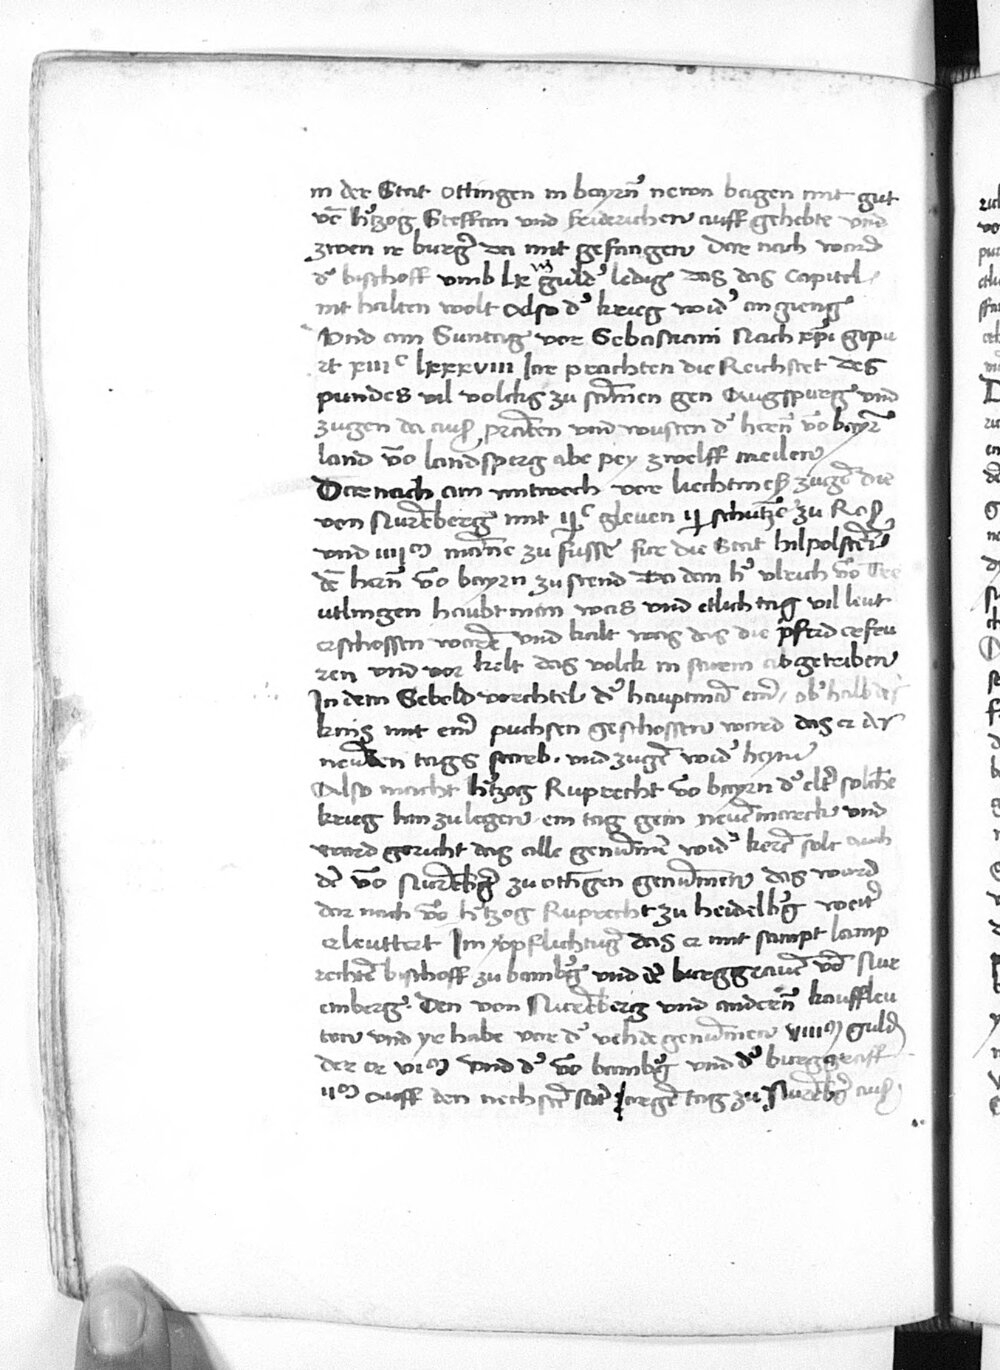 in der Stat Ottingen in bayrn̄ newn wagen mit gut
vō h'tzog Steffan vnd fridrichen auff gehebte vnd
zwen ir burg' da mit gefangen Dar nach ward
d' bischoff vmb lx guld' ledig Das das Capitel
nit halten wolt Also d' krieg wid' an gieng
Vnd am Suntag vor Sebastiani Nach xpi gepu
rt xiiiᶜ lxxxviii Jar prachten die Reichstet Des
pundes vil volcks zu samen gen Augspurg vnd
zugen da auß pranten vnd wusten d' hern̄ vō bayr̄
land vō landsperg abe pey zwelff meilen
Darnach am mitwoch vor liechtmeß zugē die
von Nurēberg mit iiᶜ gleven schutzē zu Roß
vnd iiiiᵐ manne zu fusse fur die Stat hilpolsteī
dē hern̄ vō bayrn zustend Da dan h' vlrich vō Tre
utlingen haubtman was vnd etlich tag vil leut
erschossen wardē vnd kalt was das die pferd erfru
ren vnd vor kelt das volck in sturem abgetriben
In dem Sebold vorchtel d' hauptmā eīn ob'halb des
knis mit einē puchsen geschossen ward das er des
neunden tags starb. vnd zugē wid' heym
Also macht h'tzog Ruprecht vō bayrn d' elt' solche
krieg hin zulegen ein tag gein neuēmarck vnd
ward gericht das alle genūmē wid' kerē solt auch
dē vō Nurēbg' zu othīgen genūmen das ward
dar nach vō h'tzog Ruprecht zu heidelb'g weit'
erleuttert Im v'pflichtūg das er mit sampt lamp
rechtē bischoff zu bamb'g vnd dē burggrauē vō Nur
emberg. Den von Nurēberg vnd andern̄ kauffleu
ten vnd yr habe vor d' vehde genūmen viiiᵐ guld'
der er viᵐ vnd d' vō bamb'g vnd d' burggraff
iiᵐ Auff den nechstē sāt Jorgē tag zu Nurēbg' auß